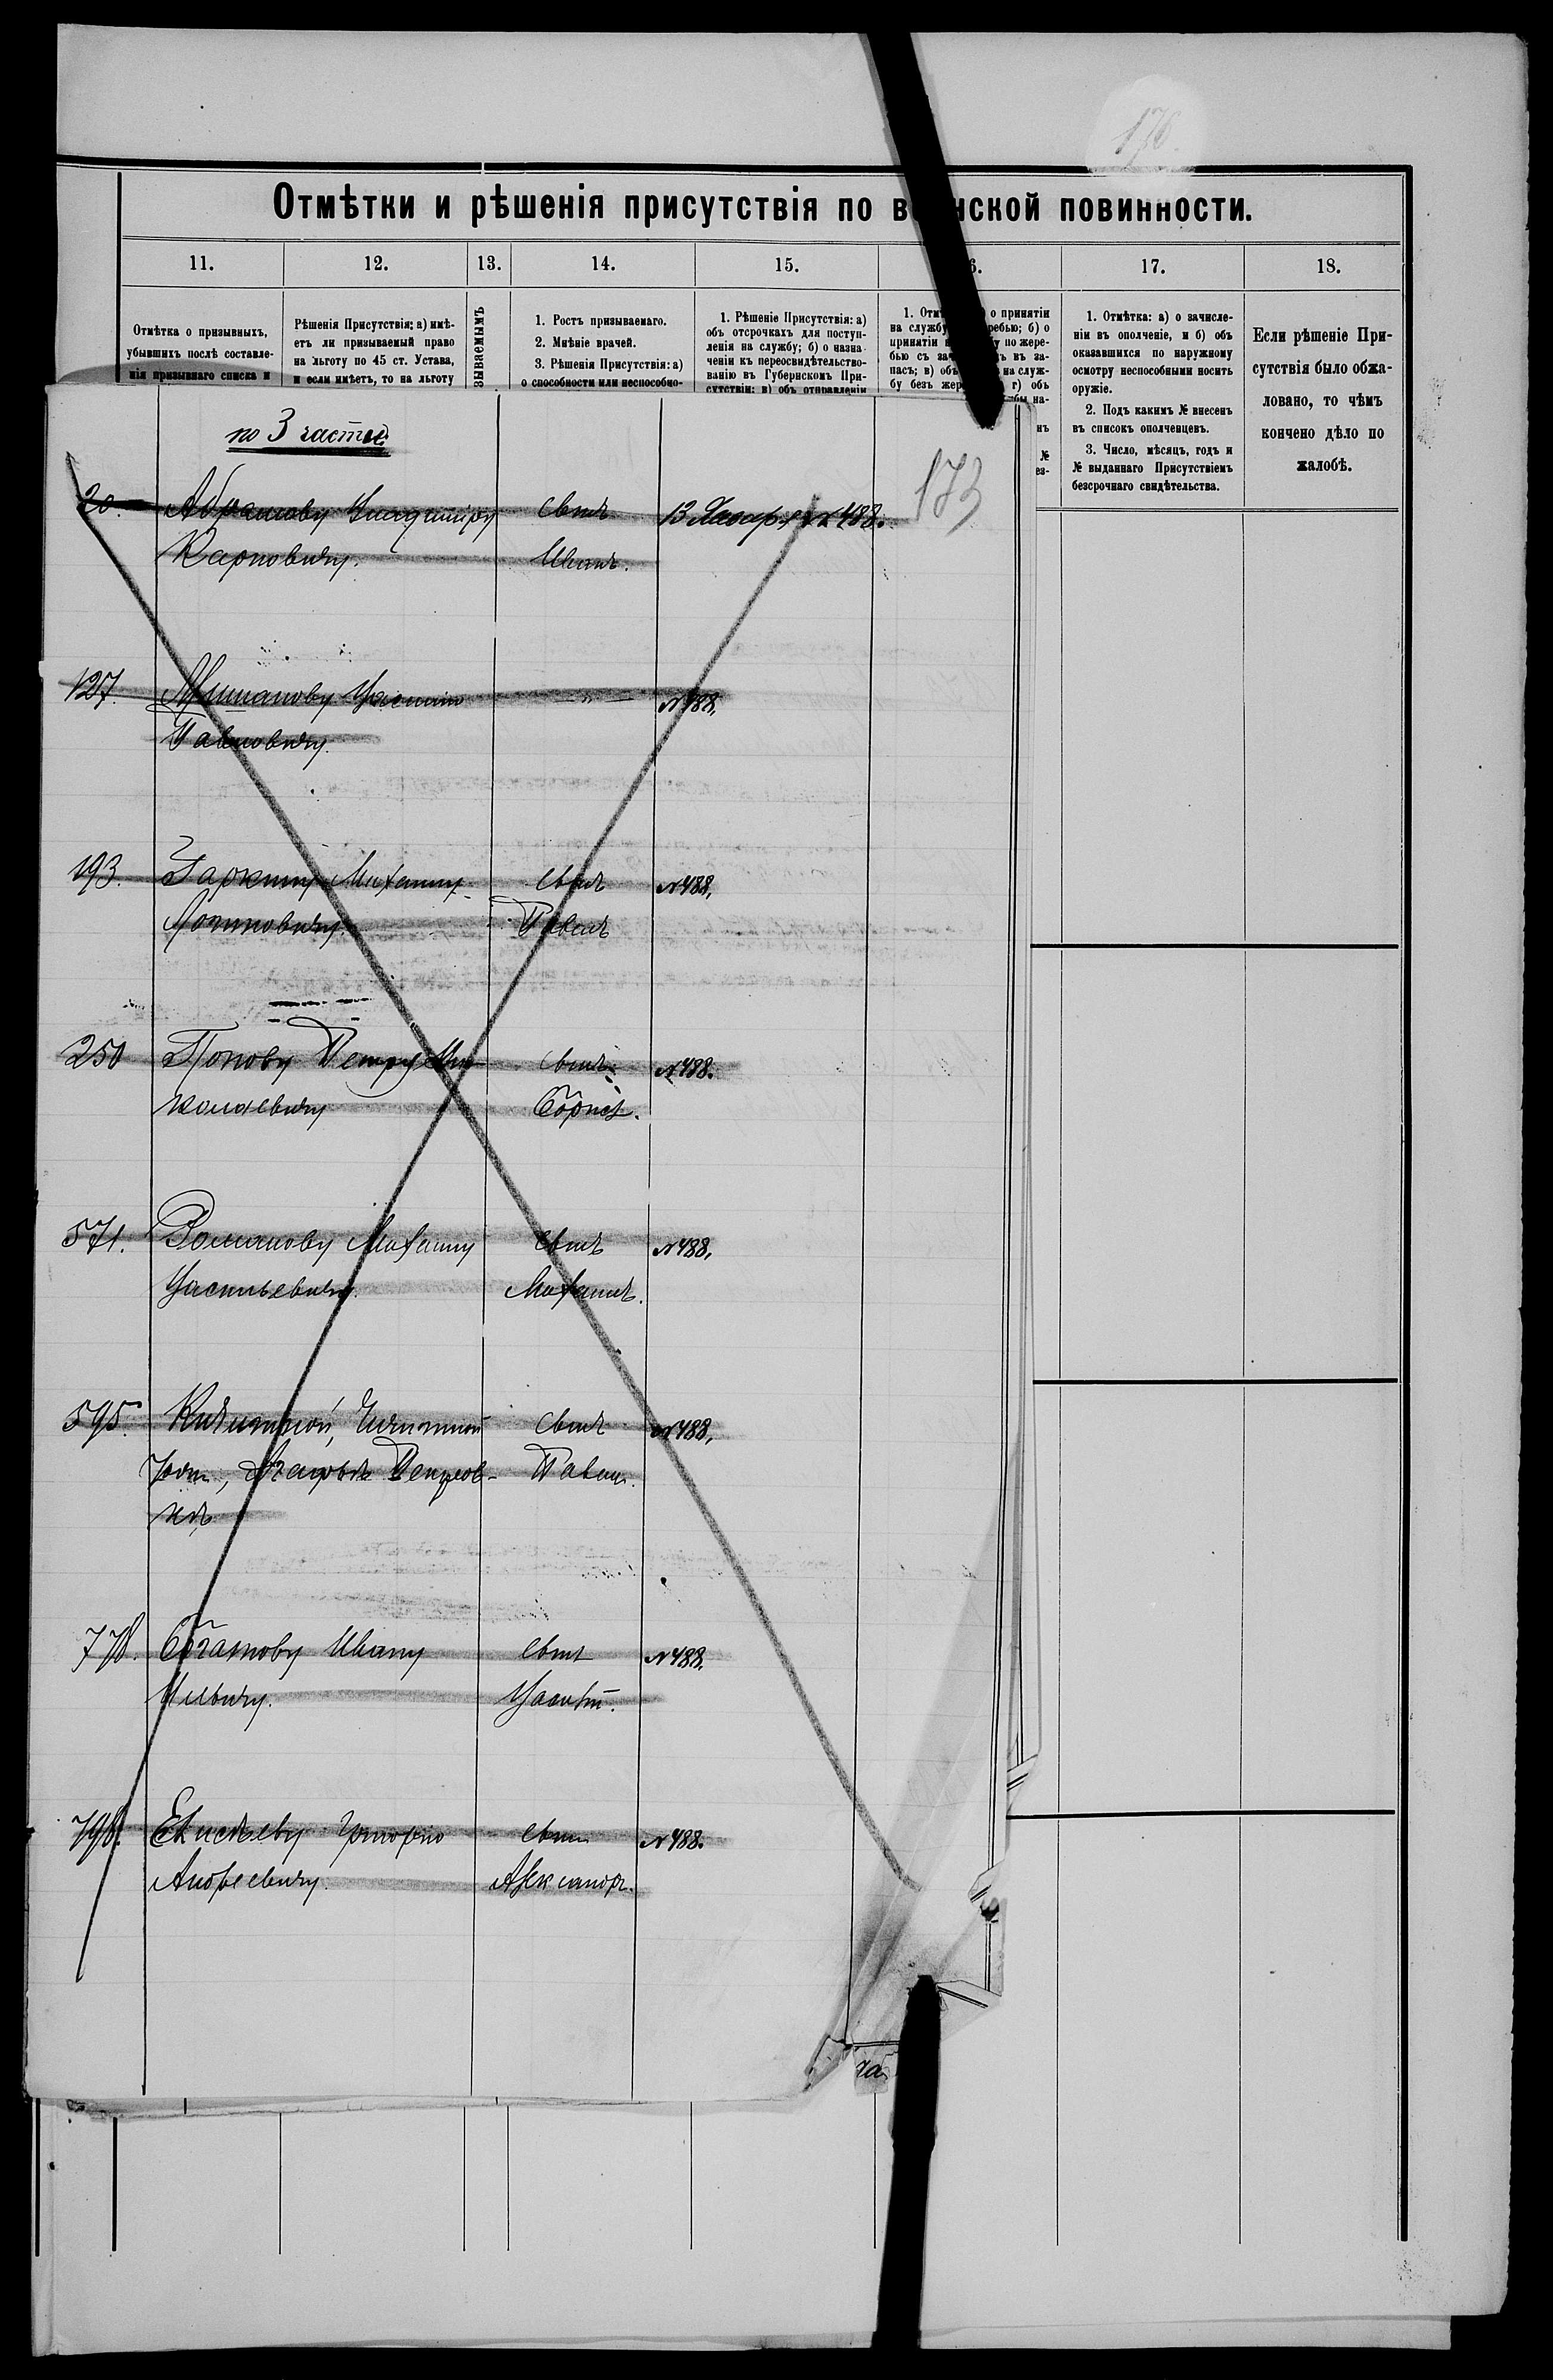 176.
Отмѣтки и рѣшенія присутствія по в нской повинности.
11. 12. 13. 14. 15. 6. 17. 18.
Отмѣтка о призывныхъ,
убывшихъ послѣ составле-
нія призывнаго списка и
Рѣшенія Присутствія: а) имѣ-
етъ ли призываемый право
на льготу по 45 ст. Устава,
и если имѣетъ, то на льготу
зываемымъ
1. Ростъ призываемаго.
2. Мнѣніе врачей.
3. Рѣшенія Присутствія: а)
о способности или неспособно-
1. Рѣшеніе Присутствія: а)
объ отсрочкахъ для поступ-
ленія на службу; б) о назна-
ченіи къ переосвидѣтельство-
ванію въ Губернскомъ При-
сутствіи; в) объ отправленіи
1. Отм о принятіи
на службу ребью; б) о
принятіи н у по жере-
бью съ зач ъ въ за-
пасъ; в) объ на служ-
бу безъ жер г) объ
бы на-
нъ
№
ез-
1. Отмѣтка: а) о зачисле-
ніи въ ополченіе, и б) объ
оказавшихся по наружному
осмотру неспособными носить
оружіе.
2. Подъ какимъ № внесенъ
въ списокъ ополченцевъ.
3. Число, мѣсяцъ, годъ и
№ выданнаго Присутствіемъ
безсрочнаго свидѣтельства.
Если рѣшеніе При-
сутствія было обжа-
ловано, то чѣмъ
кончено дѣло по
жалобѣ.
по 3 части
173
20. Абрамову Владиміру сынъ 13 Января № 488.
Карповичу. Иванъ.
127. Василію " № 488.
Павловичу.
193. Михаилу сынъ № 488.
Логиновичу. Павелъ
250 Попову Петру Ни- сынъ № 488.
колаевичу Борисъ.
571. Романову Михаилу сынъ № 488.
Васильевичу. Михаилъ.
595. сынъ № 488.
Петров- Павелъ.
нѣ
778. Ивану сынъ № 488.
Ильичу. Василій.
798. Елисѣеву Григорію сынъ № 488.
Андреевичу. Александръ.